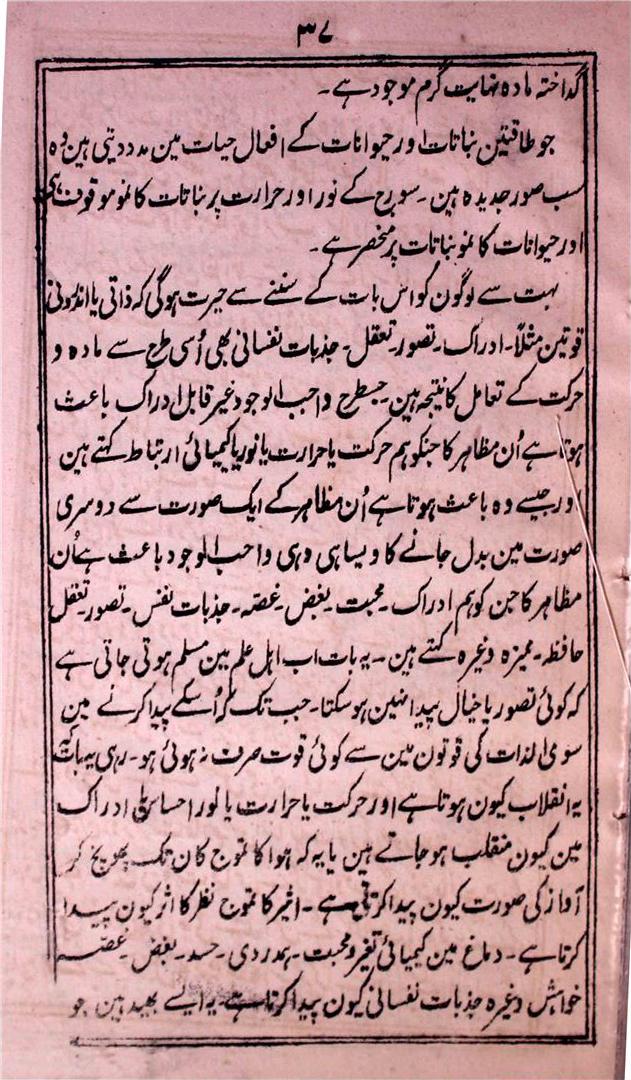 ۳۷
گداختہ مادہ نہایت گرم موجود ہے۔
جو طاقتین نباتات اور حیوانات کے افعال حیات مین مدد دیتی ہین وہ
سب صور جدیدہ ہین۔ سورج کے نور اور حرارت پر نباتات کا نمو موقوف ہی
اور حیوانات کا نمو نباتات پر منحصر ہے۔
بہت سے لوگون کو اس بات کے سننے سے حیرت ہوگی کہ ذاتی یا اندرونی
قوتین مثلاً۔ ادراک۔ تصور۔ تعقل۔ جذبات نفسانی بھی اُسی طرح سے مادہ و
حرکت کے تعامل کا نتیجہ ہین۔ جسطرح واجب الوجود غیر قابل ادراک باعث
ہوتا ہے اُن مظاہر کا جنکو ہم حرکت یا حرارت یا نور یا کیمیائی ارتباط کہتے ہین
اور جیسے وہ باعث ہوتا ہے اُن مظاہر کے ایک صورت سے دوسری
صورت مین بدل جانے کا ویسا ہی وہی واجب الوجود باعث ہے اُن
مظاہر کا جن کو ہم ادراک۔ محبت۔ بغض۔ غصہ۔ جذبات نفس۔ تصور۔ تعقل
حافظہ۔ ممیزہ وغیرہ کہتے ہین۔ یہ بات اب اہل علم مین مسلم ہوتی جاتی ہے
کہ کوئی تصور یا خیال پیدا نہین ہو سکتا۔ جب تک کہ اُسکے پیدا کرنے مین
سوی الذات کی قوتون مین سے کوئی قوت صرف نہ ہوئی ہو۔ رہی یہ بات کہ
یہ انقلاب کیون ہوتا ہے اور حرکت یا حرارت یا نور احساس یا ادراک
مین کیون منقلب ہو جاتے ہین یا یہ کہ ہوا کا تموج کان تک پہونچ کر
آواز کی صورت کیون پیدا کرتی ہے۔ اثیر کا تموج نظر کا اثر کیون پیدا
کرتا ہے۔ دماغ مین کیمیائی تغیر و محبت۔ ہمدردی۔ حسد۔ بغض۔ غصہ
خواہش وغیرہ جذبات نفسانی کیون پیدا کرتا ہے۔ یہ ایسے بھید ہین جو